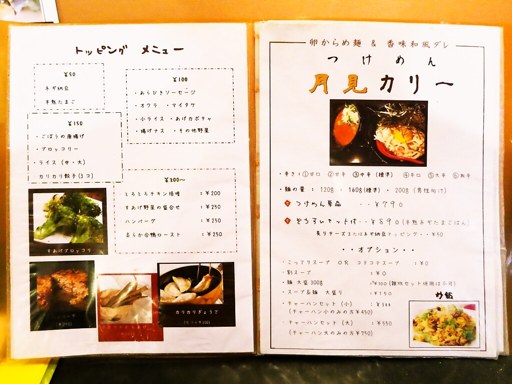 トッピング メニュー
¥50
ネギ納豆
半熟たまご
¥100
・あらびきソーセージ
・オクラ ・マイタケ
・小ライス ・あげカボチャ
・揚げナス ・その他野菜
¥150
・ごぼうの唐揚げ
・ブロッコリー
・ライス（中・大）
・カリカリ餃子(3コ)
¥200〜
・¥200
・すあげ野菜の盛合せ ・¥250
・ハンバーグ ・¥250
・あらか合鴨ロースト ・¥250
すあげブロッコリ
カリカリぎょうざ
卵からめ麺 & 香味和風ダレ
つけめん
月見カリー
・辛さ：①ゼロ ②甘辛 ③中辛（標準） ④辛口 ⑤大辛
・麺の量：120g ・160g(標準) ・200g (男性向け)
つけめん単品 ・・¥790
¥890(半熟ネギたまごはん)
・・オプション・・
・こってりスープ 0又 コナコナスープ ：¥0
・割スープ ：¥0
・麺 大盛 300g
・スープ&麺 大盛り ：¥150
・チャーハンセット（小） ：¥300
(チャーハン小のみの方¥450)
・チャーハンセット（大） ：¥550
(チャーハン大のみの方¥650)
炒飯